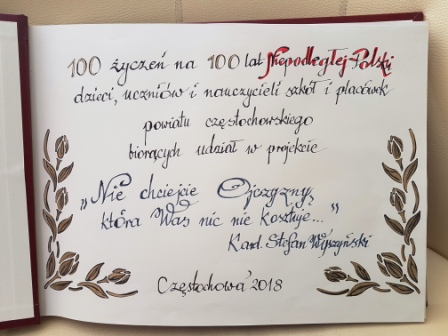 100 życzeń na 100 lat Niepodległej Polski
dzieci, uczniów i nauczycieli szkół i placówek
powiatu częstochowskiego
biorących udział w projekcie
„Nie chciejcie Ojczyzny,
która Was nic nie kosztuje..."
Kard. Stefan Wyszyński
Częstochowa 2018